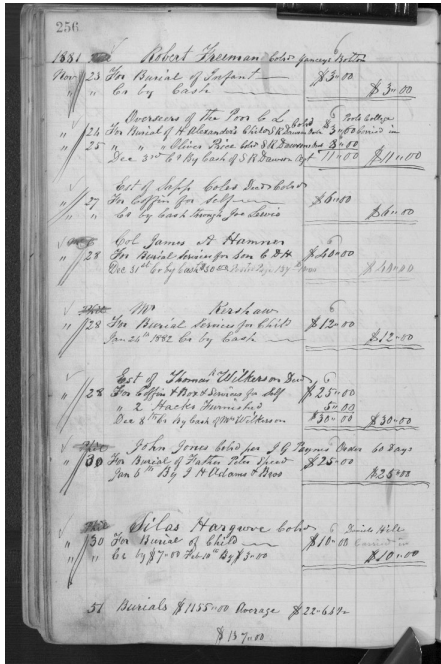 256
1881 Robert Freeman Cold
Nov 23 For Burial of Infant $3"00
" " Cr by Cash $3"00
Overseers of the Poor C L Cold
" 24 For Burial of H Alexander's Child S R Dawson $3"00
" 25 " " " Oliver Price Cold S R Dawson 8"00
Dec 3rd Cr By Cash of S R Dawson Agt 11"00 $11"00
Est of Coles Decd Cold
" 27 For Coffin for Self $6"00
" " Cr by Cash through Joe Lewis $6"00
Col James A Hamner
" 28 For Burial Services for Son C D H $40"00
Dec 31st Cr by Cash $30"00 $40"00
Mr Kershaw
" 28 For Burial Services for Child $12"00
Jan 24th 1882 Cr by Cash $12"00
Est of Thomas Wilkerson Decd
" 28 For Coffin & Box & Services for Self $25"00
" 2 Hacks Furnished 5"00
Dec 8th Cr By Cash of Mrs Wilkerson $30"00 $30"00
John Jones Cold per J G Paynes Order 60 Days
" 30 For Burial of Father Peter $25"00
Jan 6th By J H Adams & Bros $25"00
Silas Hargrove Cold
" 30 For Burial of Child $10"00
" " Cr by $7"00 Feb 10th By $3"00 $10"00
51 Burials $1155"00 Average $22"64
$137"00